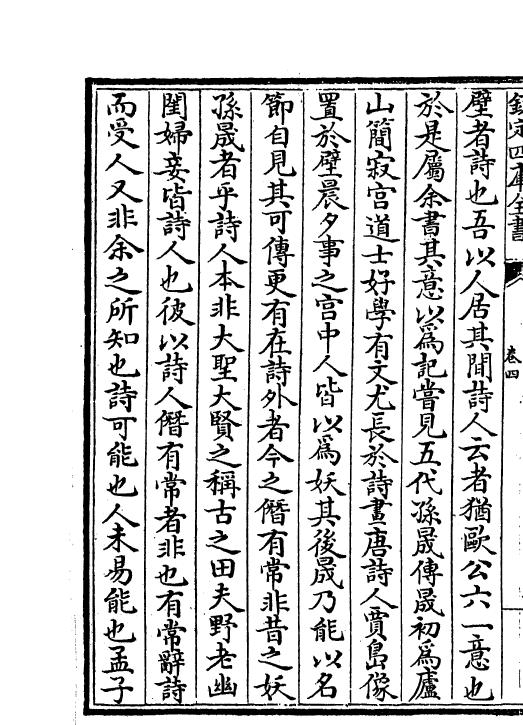 欽定四庫全書
卷四
壁者詩也吾以人居其間詩人云者猶歐公六一意也
於是屬余書其意以為記嘗見五代孫晟傳晟初為廬
山簡寂宫道士好學有文尤長於詩畫唐詩人賈島像
置於壁晨夕事之宫中人皆以為妖其後晟乃能以名
節自見其可傳更有在詩外者今之僭有常非昔之妖
孫晟者乎詩人本非大聖大賢之稱古之田夫野老幽
閨婦妾皆詩人也彼以詩人僭有常者非也有常辭詩
而受人又非余之所知也詩可能也人未易能也孟子